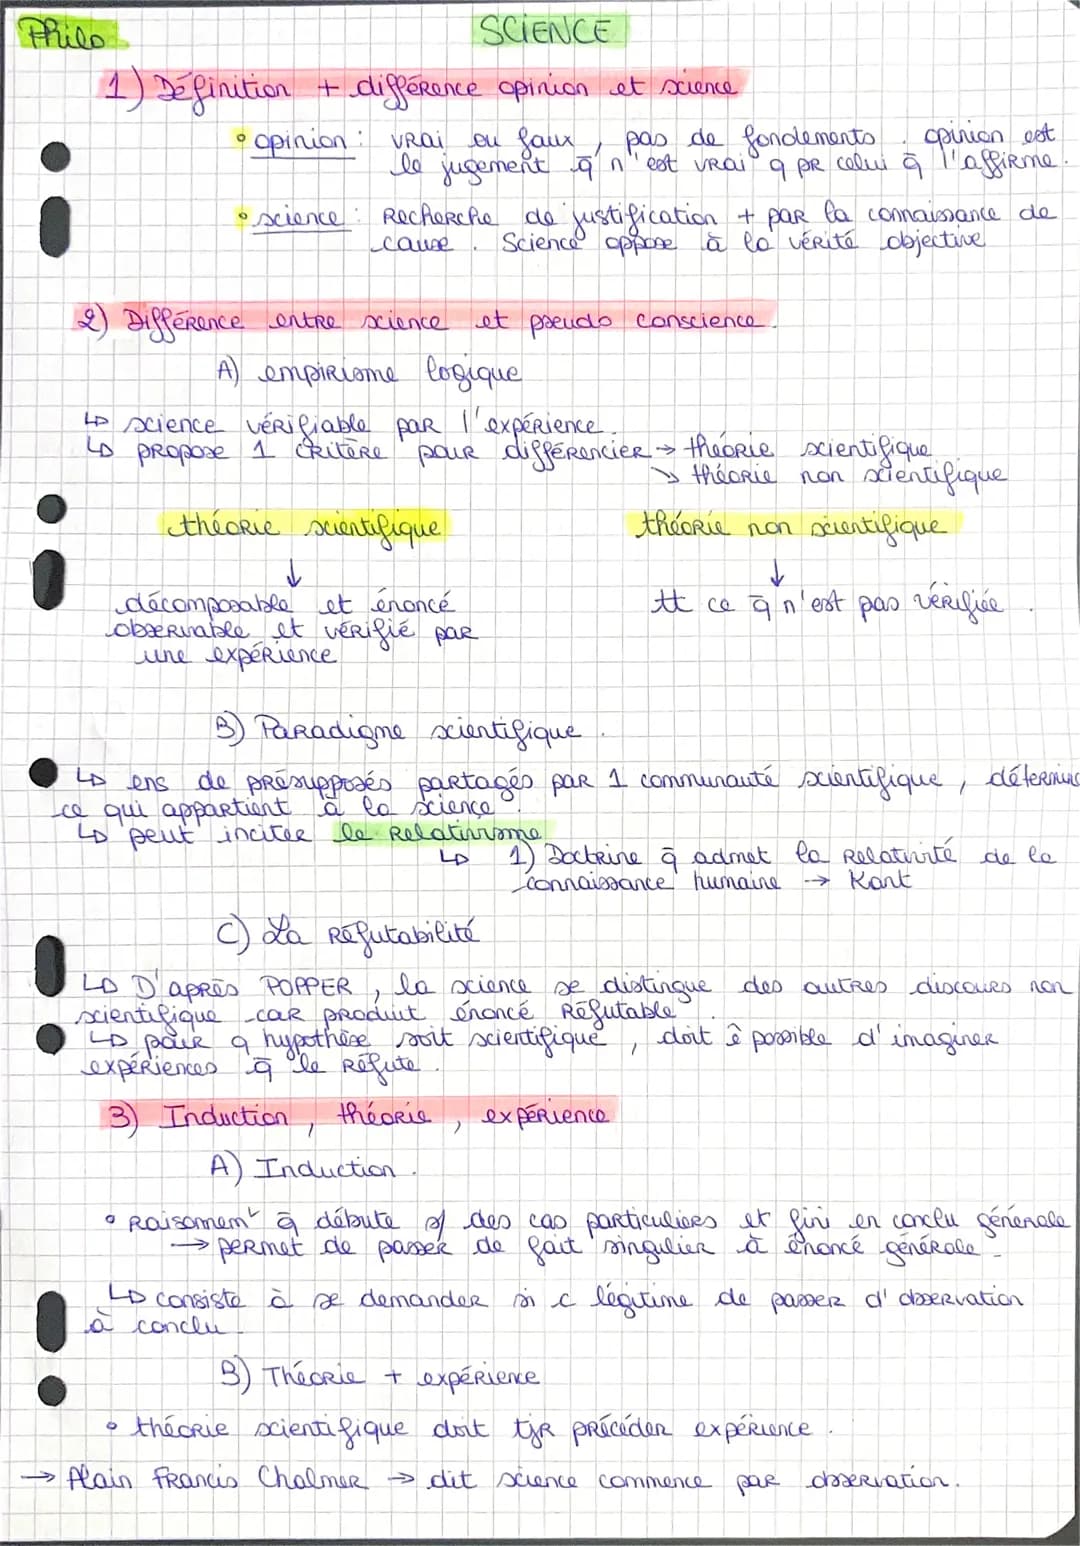 Philo
SCIENCE
1) Définition + différence opinion et science
• opinion : vrai ou faux, pas de fondements. opinion est
le jugement q̄ n'est vrai q pr celui q̄ l'affirme.
• science : Recherche de justification + par la connaissance de
cause. Science oppose à la vérité objective
2) Différence entre science et pseudo conscience.
A) empirisme logique
↳ science vérifiable par l'expérience.
↳ propose 1 critère pour différencier → théorie scientifique
↘ théorie non scientifique
théorie scientifique théorie non scientifique
↓ ↓
décomposable et énoncé tt ce q̄ n'est pas vérifiée.
observable et vérifié par
une expérience
B) Paradigme scientifique.
↳ ens de présupposés partagés par 1 communauté scientifique, détermine
ce qui appartient à la science.
↳ peut inciter le relativisme
↳ 1) Doctrine q̄ admet la relativité de la
connaissance humaine → Kant
C) La Réfutabilité
↳ D'après POPPER, la science se distingue des autres discours non
scientifique car produit énoncé réfutable.
↳ pour q hypothèse soit scientifique, doit ê possible d'imaginer
expériences q̄ le réfute.
3) Induction, théorie, expérience
A) Induction.
• Raisonnemt q̄ débute des cas particuliers et fini en conclu générale
→ permet de passer de fait singulier à énoncé générale.
↳ consiste à se demander si c légitime de passer d'observation
à conclu.
B) Théorie + expérience
• théorie scientifique doit tjr précéder expérience.
→ Alain Francis Chalmer → dit science commence par observation.